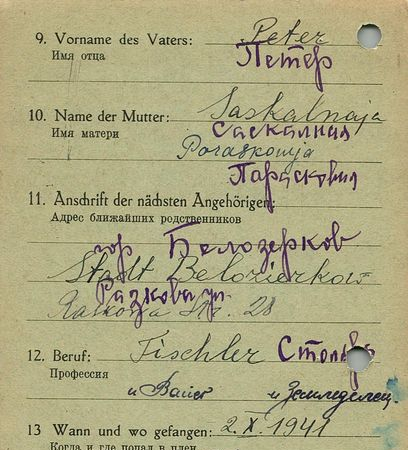 9. Vorname des Vaters: Peter
Имя отца Петер
10. Name der Mutter: Saskalnaja
Имя матери Саскалная
Poraskowja
Парасковия
11. Anschrift der nächsten Angehörigen:
Адрес ближайших родственников
гор Белозерков
Stadt Belozierkow
Разкова ул.
Raskowa Str. 28
12. Beruf: Tischler Столяр
Профессия
и Bauer и Земледелец
13 Wann und wo gefangen: 2.X.1941
Когда и где попал в плен